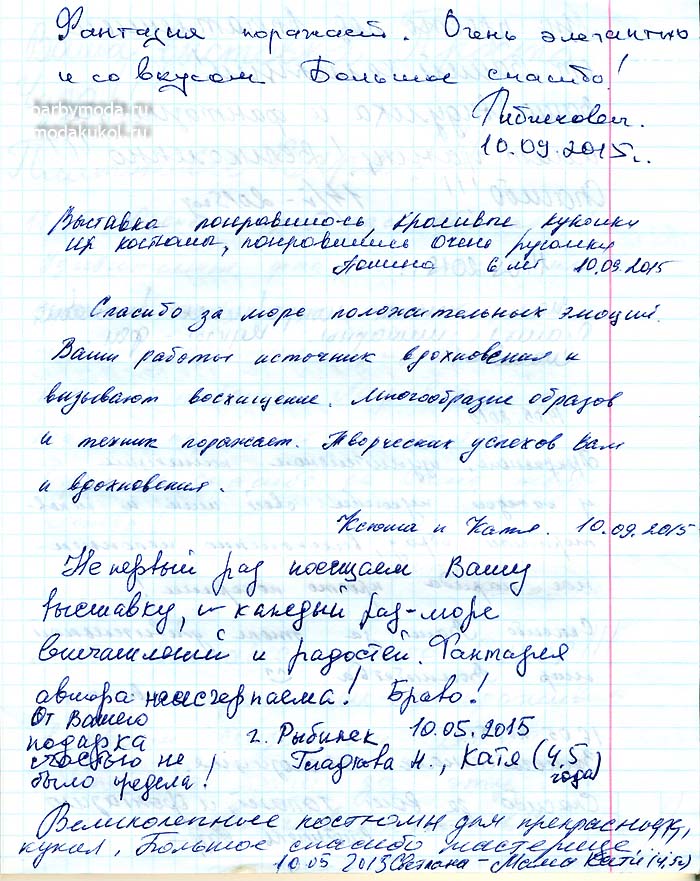 Фантазия поражает. Очень элегантно
и со вкусом Большое спасибо!
barbymoda.ru
modakukol.ru
10.09.2015г.
Выставка понравилось, красивые куколки
их костюмы, понравились очень русалки
Полина 6 лет 10.09.2015
Спасибо за море положительных эмоций.
Ваши работы источник вдохновения и
вызывают восхищение. Многообразие образов
и техник поражает. Творческих успехов Вам
и вдохновения.
Ксюша и Катя. 10.09.2015
Не первый раз посещаем Вашу
выставку, и каждый раз - море
впечатлений и радостей. Фантазия
автора неисчерпаема! Браво!
От Вашего
подарка г. Рыбинск 10.05.2015
счастью не Н., Катя (4,5
было предела! года)
Великолепные костюмы для прекрасных
кукол. Большое спасибо мастерице
10.05 2015 Светлана - Мама Кати (4,5г)